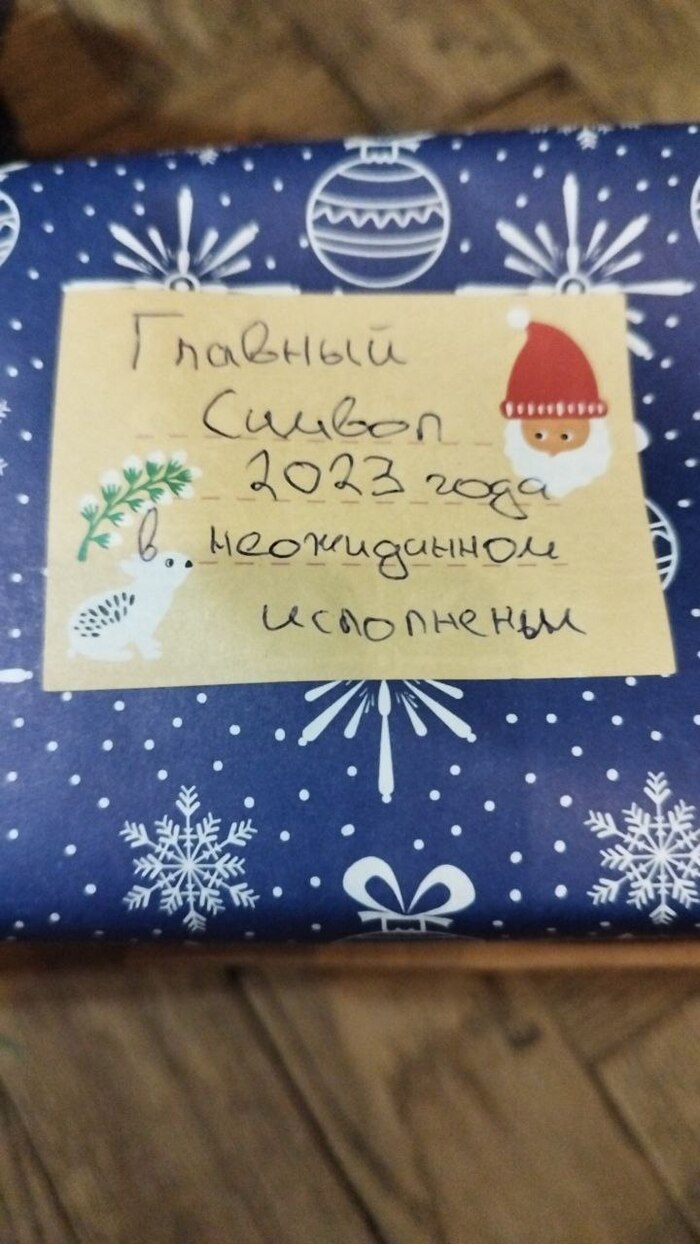 Главный
Символ
2023 года
в неожиданном
исполненьи